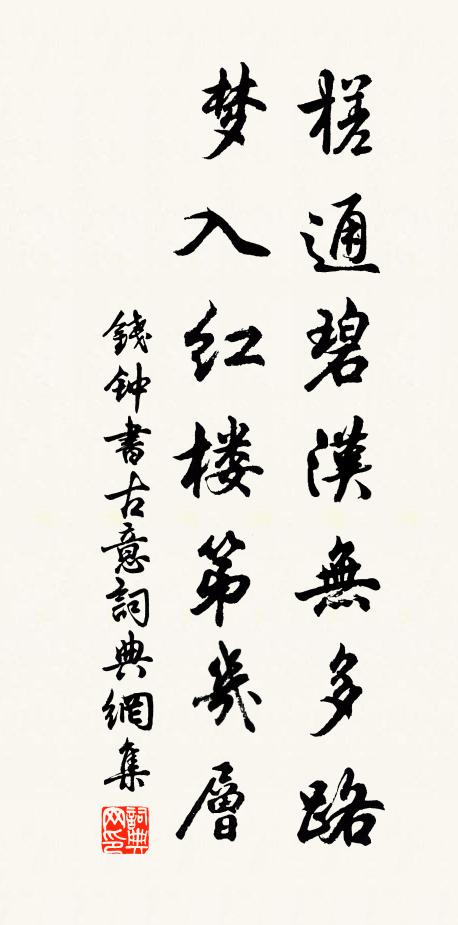 槎通碧漢無多路
梦入红楼第幾層
錢钟書古意詞典網集
詞典网印